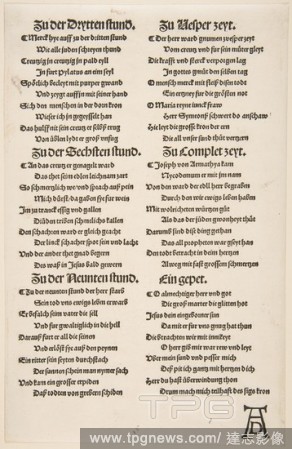 Zu der Drytten stund.
Merck hye auff zu der dritten stund
Wie alle juden schryen thund
Creutzig jn creutzig jn pald eyl
Jn furt Pylatus an eim seyl
Spötlich bekleyt mit purper gwand
Vnd zeygt auff jn mit seiner hand
Sich den menschen in der dorn kron
Wieser ich jn gegeysselt han
Das hulff jn sein creutz er selbst
Von
Zu der Sechsten stund.
An das creutz er gnagelt ward
Das thet sein edlen leichnam zart
So schmertzlich we vnd sprach auß pein
Mich dürst da gaben sye fur wein
Jm zu tranck essig vnd gallen
Den schachern ward er gleich gacht
Der linck schacher spot sein vnd lacht
Vnd der ander thet gnad begern
Des was jn Jesus bald gewern
Zu der Neunten stund.
Zu der neunten stund der herr starb
Sein tod vns ewigs leben erwarb
Er befalch sein vater die sell
Vnd fur gwaltiglich in die hell
Darauß fürt er all die seinen
Vnd erlost sye auß den peynen
Ein ritter sein seyten durchstach
Der sunnen schein man nymer sach
Vnd kam ein grosser erpiden
Das todten von grebern schiden
Zu Vesper zeyt.
Der herr ward gnumen zvesper zeyt
Vom creutz vnd fur sein muter gleyt
Die krafft vnd sterck verporgen lag
Jn gottes gmüt den selben tag
O mensch merck mit fleyß diesen tod
Hie ertzney für die schwerst not
O Maria reyne junckfraw
Herr Symeons schwert do anschaw
Hie leyt die grosse kron der ern
Die all vnser sund thut verzern
Zu Complet zeyt.
Joseph von Armathya kam
Nycodemus er mit jm nam
Von den ward der edl herr begraben
Durch den wir ewigs leben haben
Mit wolriechten würtzen gut
Als das der juden gwonheyt thut
Darumb sind dise ding gethan
Das all propheten war gseyt han
Der tod betracht in deim hertzen
Alweg mit fast grossem schmertzen
Ein gepet.
O almechtiger herr vnd got
Die groß marter die glitten hot
Jesus dein eingeborner sun
Damit er fur vns gnug hat thun
Die betrachten wir mit innikeyt
O herr gib mir war rew vnd leyt
Vber mein sund vnd pesser mich
Des pit ich gantz mit hertzen dich
Herr du hast überwindung thon
Drum mach mich teilhafft des sigs kron
AD
TPG
www.tpgnews.com 達志影像